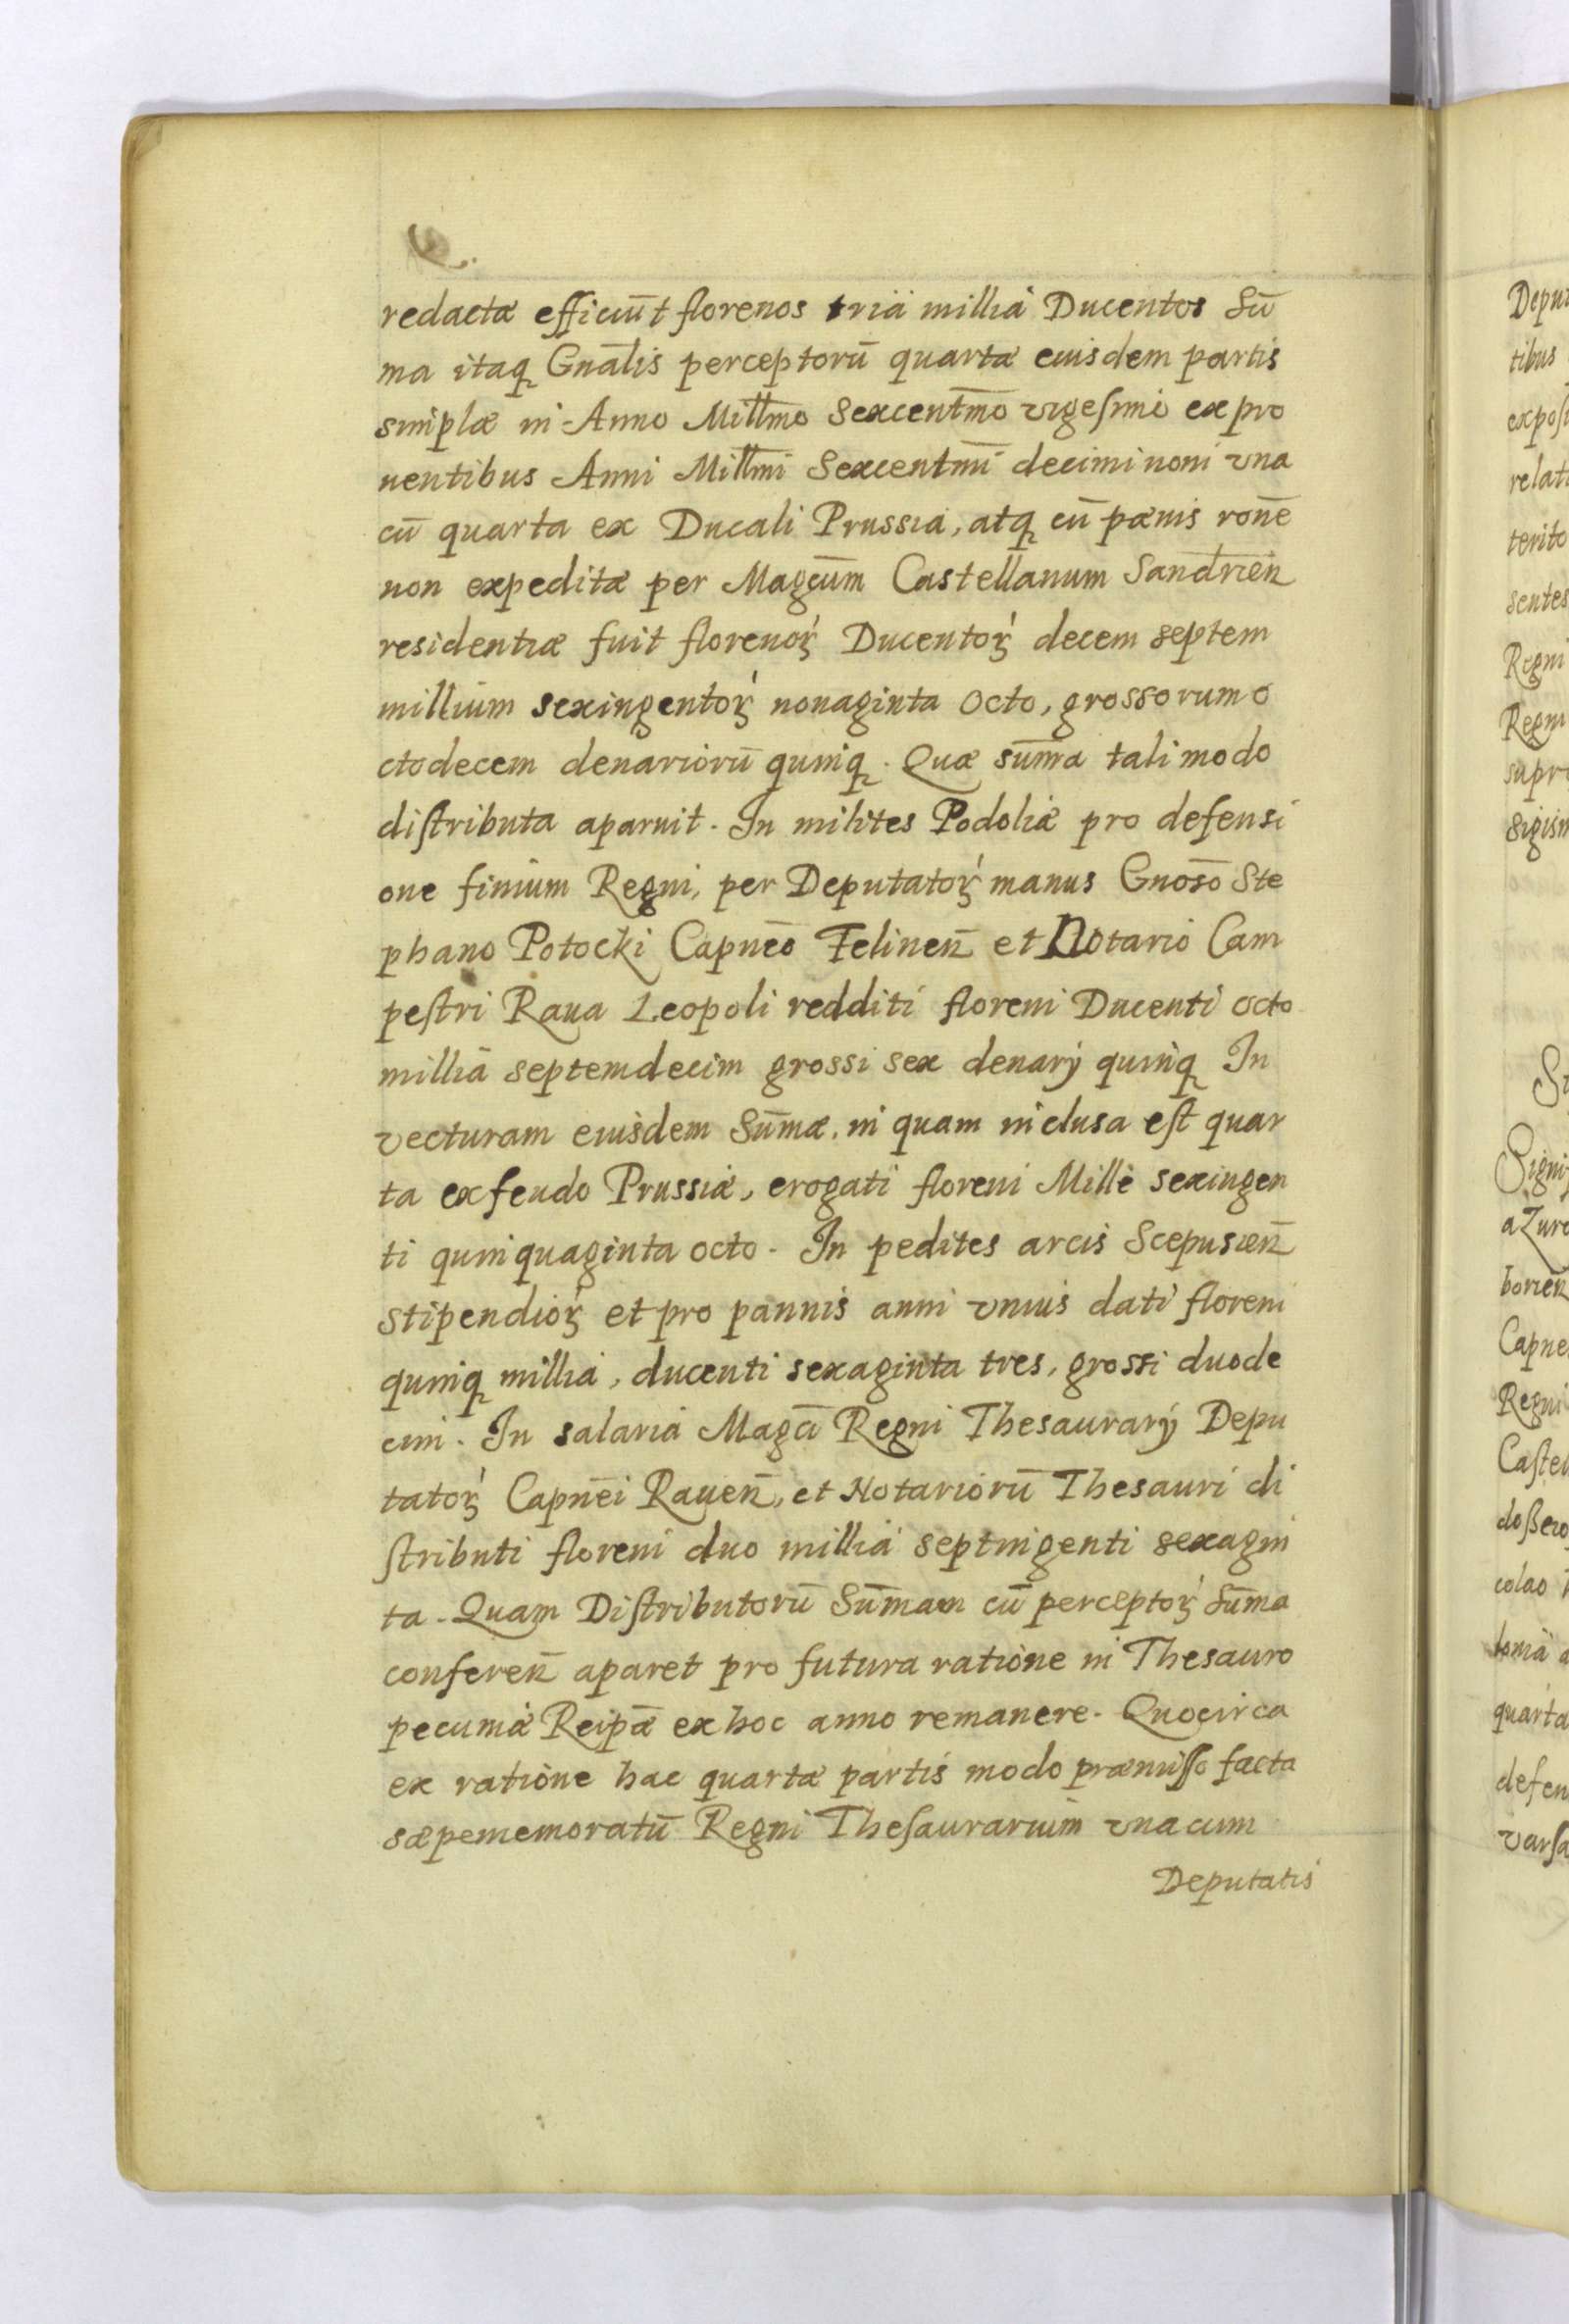 redacta efficiūt florenos tria millia Ducentos Sū
ma itaq Gnālis perceptorū quartæ euisdem partis
simplæ in Anno Millmo Sexcentmo vigesimo ex pro
uentibus Anni Millmi Sexcentmi decimi noni vna
cū quarta ex Ducali Prussia, atq cū pænis ronē
non expeditæ per Magcum Castellanum Sandrien̄
residentiæ fuit florenorꝝ Ducentorꝝ decem septem
millium sexingentorꝝ nonaginta octo, grossorum o
ctodecem denariorū quinq. Quæ sum̄a tali modo
distributa aparuit. In milites Podoliæ pro defensi
one finium Regni, per Deputatorꝝ manus Gnoso Ste
phano Potocki Capneo Felinen̄ et Notario Cam
pestri Raua Leopoli redditi floreni Ducenti octo
millia septemdecim grossi sex denarij quinq In
vecturam eiusdem Sum̄æ, in quam inclusa est quar
ta ex feudo Prussiæ, erogati floreni Mille sexingen
ti quinquaginta octo. In pedites arcis Scepusien̄
stipendiorꝝ et pro pannis anni vnius dati floreni
quinq millia, ducenti sexaginta tres, grossi duode
cim. In salaria Magci Regni Thesaurarij Depu
tatorꝝ Capnei Rauen̄, et Notariorū Thesauri di
stributi floreni duo millia septingenti sexagin
ta. Quam Distributorū Sum̄am cū perceptorꝝ Sum̄a
conferen̄ aparet pro futura ratione in Thesauro
pecuniæ Reipæ ex hoc anno remanere. Quocirca
ex ratione hac quartæ partis modo præmisso facta
sæpememoratū Regni Thesaurarium vna cum
Deputatis
Depu
tibus
expos
relat
terito
sentes
Regni
Regni
supr
Sigism
Signi
a Zur
borien̄
Capne
Regni
Castel
colao
quarta
defen
varsa